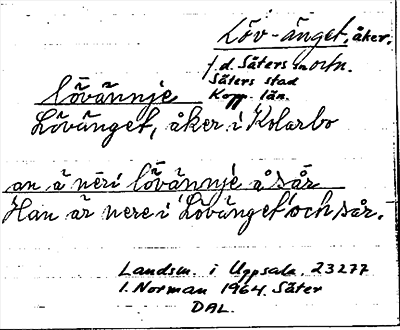 Löv-änget, åker.
f.d. Säters sn och n.
Säters stad
Kopp. län.
lövännje
Lövänget, åker i Kolarbo
an ä nēri lövännjē å sår
Han är nere i Lövänget och sår.
Landsm. i Uppsala. 23277
I. Norman 1964. Säter
DAL.